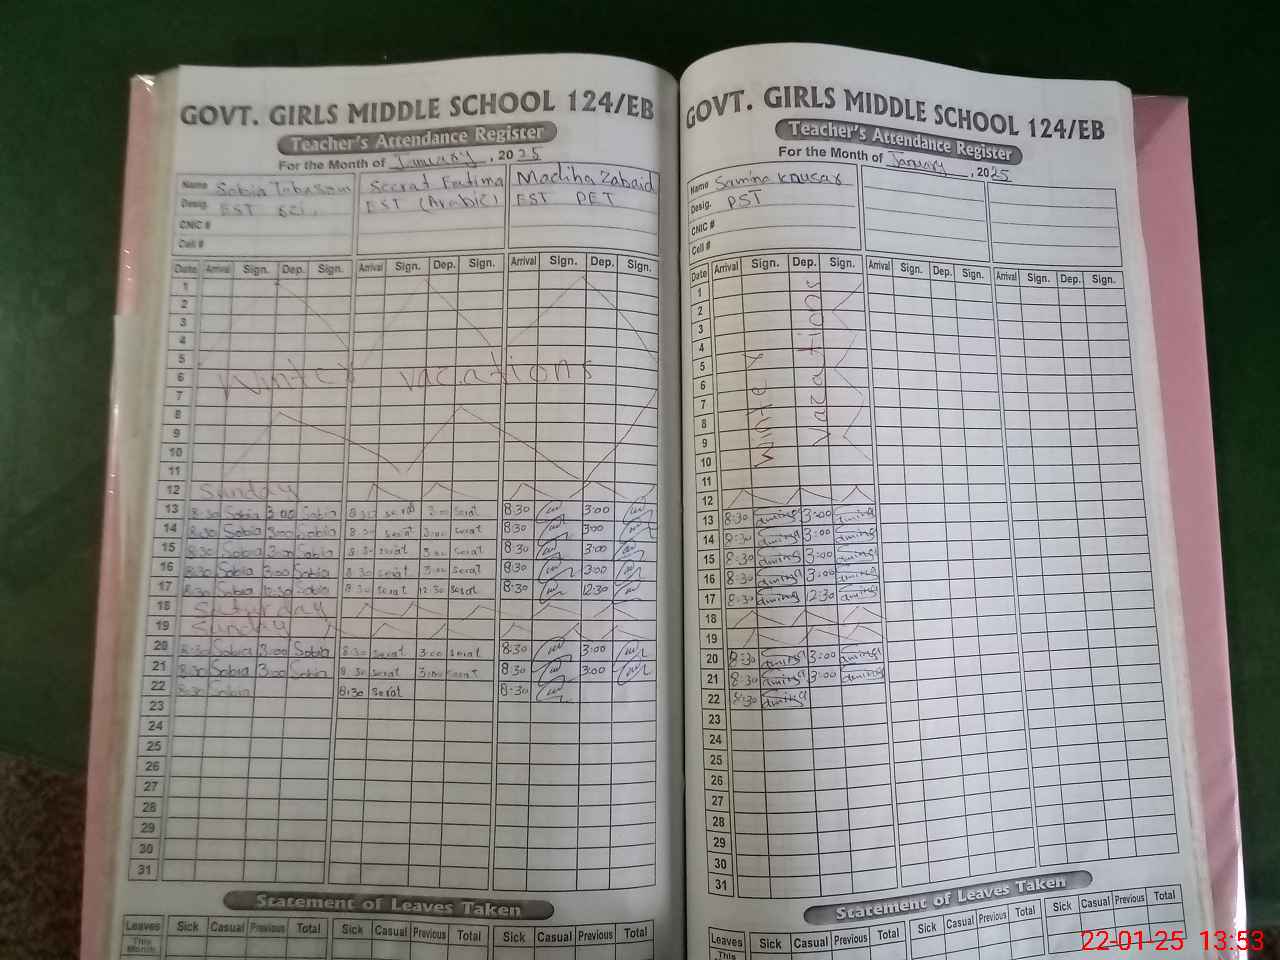 GOVT. GIRLS MIDDLE SCHOOL 124/EB
Teacher's Attendance Register
For the Month of January, 2025
Name Sobia Tabasom Seerat Fatima Madiha Zabaid
Desig. EST Sci. EST (Arabic) EST PET
CNIC #
Cell #
Date Arrival Sign. Dep. Sign. Arrival Sign. Dep. Sign. Arrival Sign. Dep. Sign.
1
2
3
4
5
6 Winter vacations
7
8
9
10
11
12 Sunday
13 8:30 Sobia 3:00 Sobia 8:30 serat 3:00 serat 8:30 3:00
14 8:30 Sobia 3:00 Sobia 8:30 serat 3:00 serat 8:30 3:00
15 8:30 Sobia 3:00 Sobia 8:30 serat 3:00 serat 8:30 3:00
16 8:30 Sobia 3:00 Sobia 8:30 serat 3:00 serat 8:30 3:00
17 8:30 Sobia 12:30 Sobia 8:30 serat 12:30 serat 8:30 12:30
18 Saturday
19 Sunday
20 8:30 Sobia 3:00 Sobia 8:30 serat 3:00 serat 8:30 3:00
21 8:30 Sobia 3:00 Sobia 8:30 serat 3:00 serat 8:30 3:00
22 8:30 Sobia 8:30 serat 8:30
23
24
25
26
27
28
29
30
31
Statement of Leaves Taken
Leaves Sick Casual Previous Total Sick Casual Previous Total Sick Casual Previous Total
This Month
GOVT. GIRLS MIDDLE SCHOOL 124/EB
Teacher's Attendance Register
For the Month of January, 2025
Name Samina Kousar
Desig. PST
CNIC #
Cell #
Date Arrival Sign. Dep. Sign. Arrival Sign. Dep. Sign. Arrival Sign. Dep. Sign.
Winter vacations
1
2
3
4
5
6
7
8
9
10
11
12
13 8:30 3:00
14 8:30 3:00
15 8:30 3:00
16 8:30 3:00
17 8:30 12:30
18
19
20 8:30 3:00
21 8:30 3:00
22 8:30
23
24
25
26
27
28
29
30
31
Statement of Leaves Taken
Leaves Sick Casual Previous Total Sick Casual Previous Total Sick Casual Previous Total
This
22-01-25 13:53